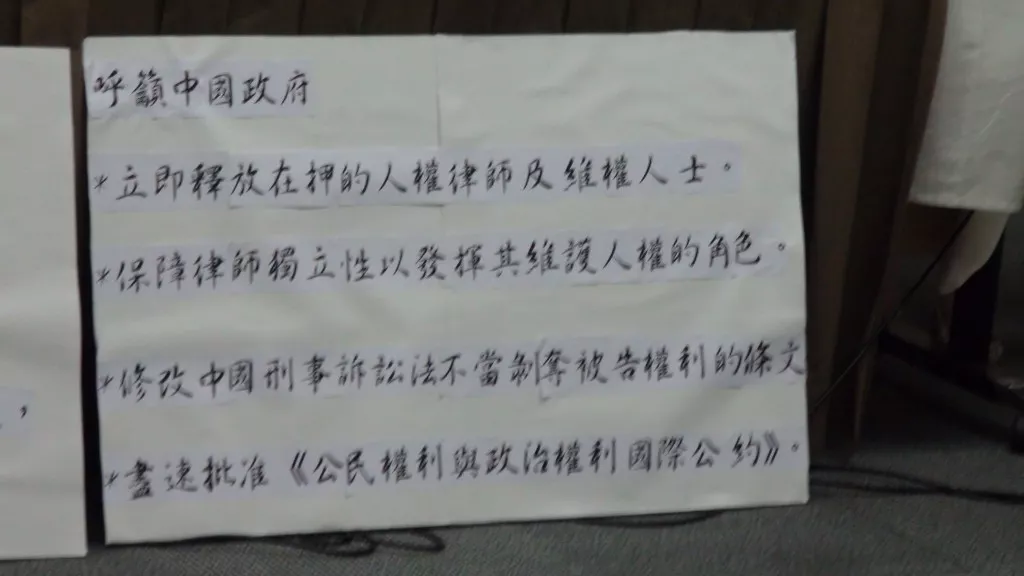 呼籲中國政府
*立即釋放在押的人權律師及維權人士。
*保障律師獨立性以發揮其維護人權的角色。
*修改中國刑事訴訟法不當剝奪被告權利的條文
*盡速批准《公民權利與政治權利國際公約》。
,